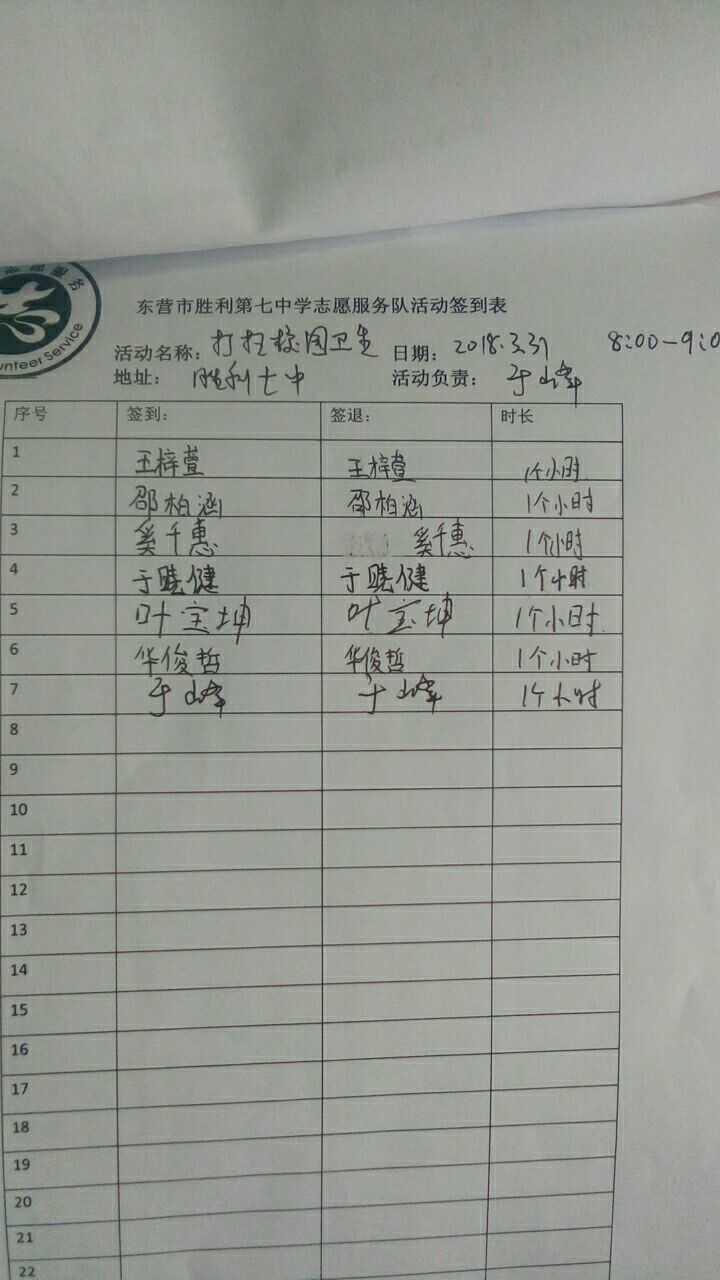 志愿服务
Volunteer Service
东营市胜利第七中学志愿服务队活动签到表
活动名称：打扫校园卫生 日期：2018.3.31 8:00-9:0
地址： 胜利七中 活动负责：于山峰
序号 签到： 签退： 时长
1 王梓萱 王梓萱 1个小时
2 邵柏涵 邵柏涵 1个小时
3 奚千惠 奚千惠 1个小时
4 于晓健 于晓健 1个小时
5 叶宝坤 叶宝坤 1个小时
6 华俊哲 华俊哲 1个小时
7 于山峰 于山峰 1个小时
8
9
10
11
12
13
14
15
16
17
18
19
20
21
22